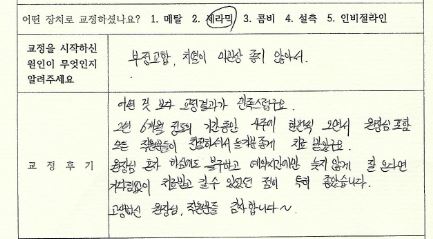 어떤 장치로 교정하셨나요? 1. 메탈 2. 세라믹 3. 콤비 4. 설측 5. 인비절라인
교정을 시작하신
원인이 무엇인지
알려주세요
부정교합, 치열이 미관상 좋지 않아서.
교 정 후 기
어떤 것 보다 교정결과가 만족스럽구요.
그런 6개월 정도의 기간동안 4주에 한번씩 오면서 원장님 포함
모든 직원분들이 친절하셔서 즐겁게 치료 받았구요.
원장님 혼자 하심에도 불구하고 예약시간이만 늦지않게 잘 온다면
기다림없이 치료받고 갈 수 있었던 점이 특히 좋았습니다.
고생하신 원장님, 직원분들 감사합니다~